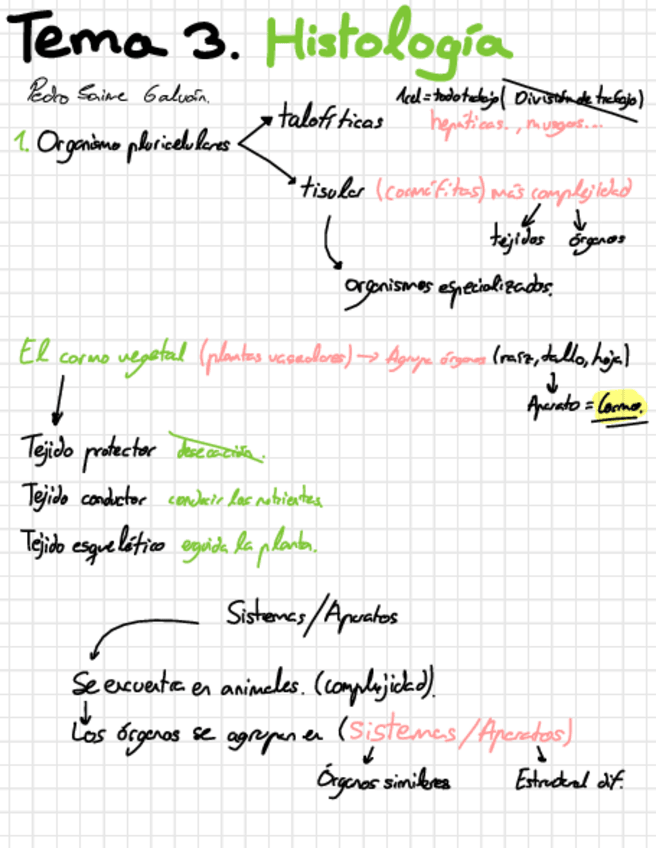 Tema 3. Histología
Pedro Saime Galván.
1cel = todo trabajo ( División de trabajo)
talofíticas
hepáticas., musgos...
1. Organismo pluricelulares
tisular (cormófitas) más complejidad
tejidos órganos
organismos especializados.
El cormo vegetal (plantas vasculares) → Agrupa órganos (raíz, tallo, hoja)
Aparato = Cormo.
Tejido protector desecación.
Tejido conductor conducir los nutrientes
Tejido esquelético erguida la planta.
Sistemas/Aparatos
Se encuentra en animales. (complejidad).
Los órganos se agrupan en (Sistemas/Aparatos)
Órganos similares Estructural dif.